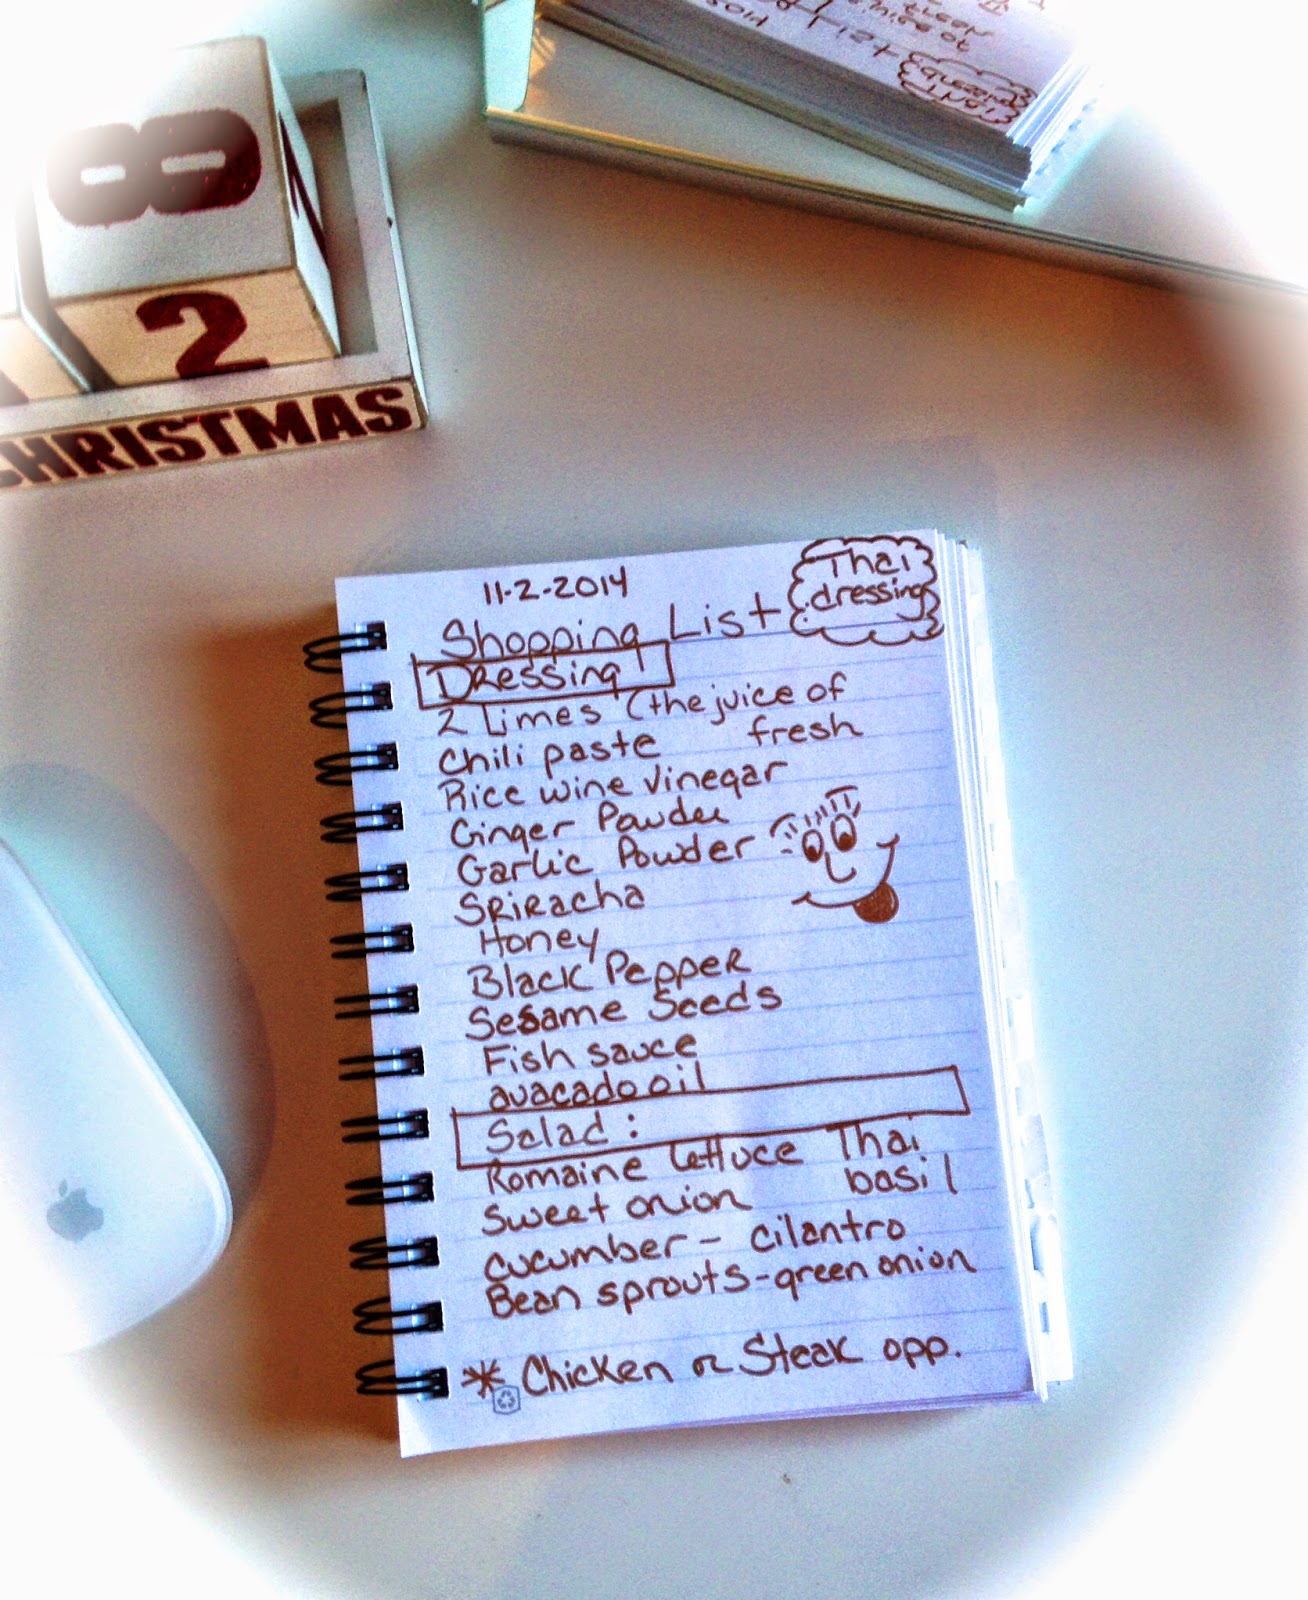 8
2
CHRISTMAS
11-2-2014
Shopping List
Thai
dressing
Dressing
2 Limes (the juice of
fresh
Chili paste
Rice wine vinegar
Ginger Powder
Garlic Powder
Sriracha
Honey
Black Pepper
Sesame Seeds
Fish sauce
avacado oil
Salad:
Romaine lettuce Thai
basil
Sweet onion
cucumber - cilantro
Bean sprouts - green onion
* Chicken or Steak opp.